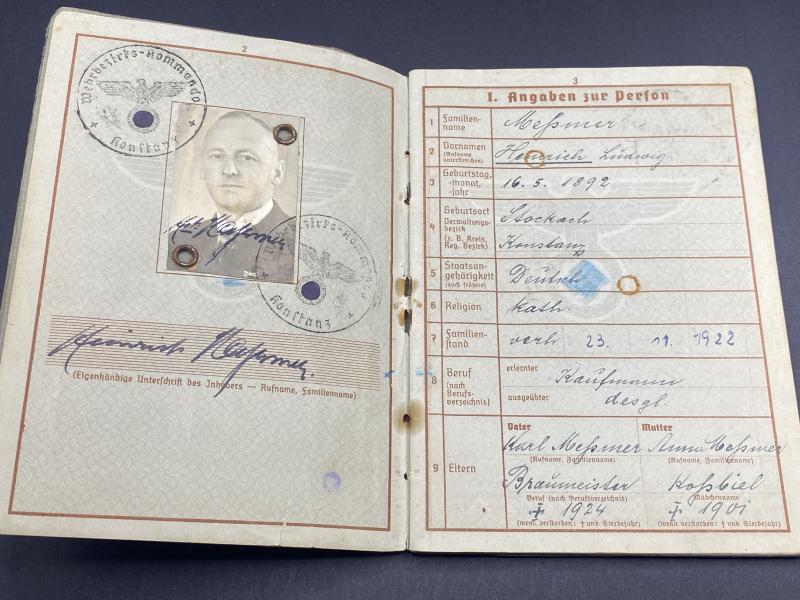 2
Wehrbezirks-Kommando
Konstanz
Wehrbezirks-Kommando
Konstanz
Heinrich Meßmer.
(Eigenhändige Unterschrift des Inhabers — Rufname, Familienname)
3
I. Angaben zur Person
1 Familien-name Meßmer
2 Vornamen (Rufname unterstreichen) Heinrich Ludwig
3 Geburtstag, -monat, -jahr 16. 5. 1892
4 Geburtsort Stockach
Verwaltungs-bezirk (z. B. Kreis, Reg. Bezirk) Konstanz
5 Staatsan-gehörigkeit (auch frühere) Deutsch
6 Religion kath.
7 Familien-stand verh 23. 11. 1922
8 Beruf (nach Berufs-verzeichnis) erlernter Kaufmann
ausgeübter desgl.
Vater Mutter
Karl Meßmer Anna Meßmer
(Rufname, Familienname) (Rufname, Familienname)
9 Eltern Braumeister Koßbiel
Beruf (nach Berufsverzeichnis) Mädchenname
† 1924 † 1901
(wenn verstorben: † und Sterbejahr) (wenn verstorben: † und Sterbejahr)